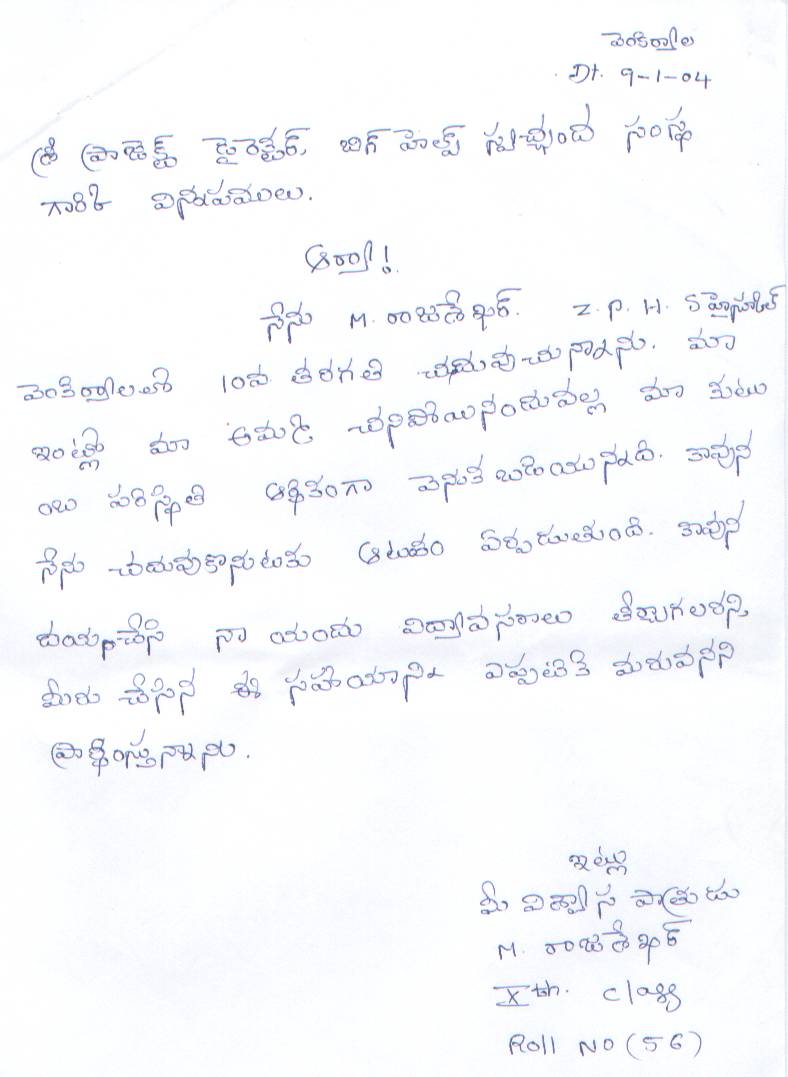 వెంకిర్యాల
Dt. 9-1-04
శ్రీ ప్రాజెక్ట్ డైరెక్టర్, బిగ్ హెల్ప్ స్వచ్ఛంద సంస్థ
గారికి విన్నపములు.
ఆర్యా!
నేను M. రాజశేఖర్. Z.P.H.S హైస్కూల్
వెంకిర్యాలలో 10వ తరగతి చదువుచున్నాను. మా
ఇంట్లో మా అమ్మ చనిపోయినందువల్ల మా కుటు
ంబ పరిస్థితి ఆర్థికంగా వెనుక బడియున్నది. కావున
నేను చదువుకొనుటకు ఆటంకం ఏర్పడుతుంది. కావున
దయచేసి నా యందు విద్యావసరాలు తీర్చగలరని
మీరు చేసిన ఈ సహయాన్ని ఎప్పటికి మరువనని
ప్రార్థిస్తున్నాను.
ఇట్లు
మీ విశ్వాస పాత్రుడు
M. రాజశేఖర్
Xth. class
Roll NO (56)